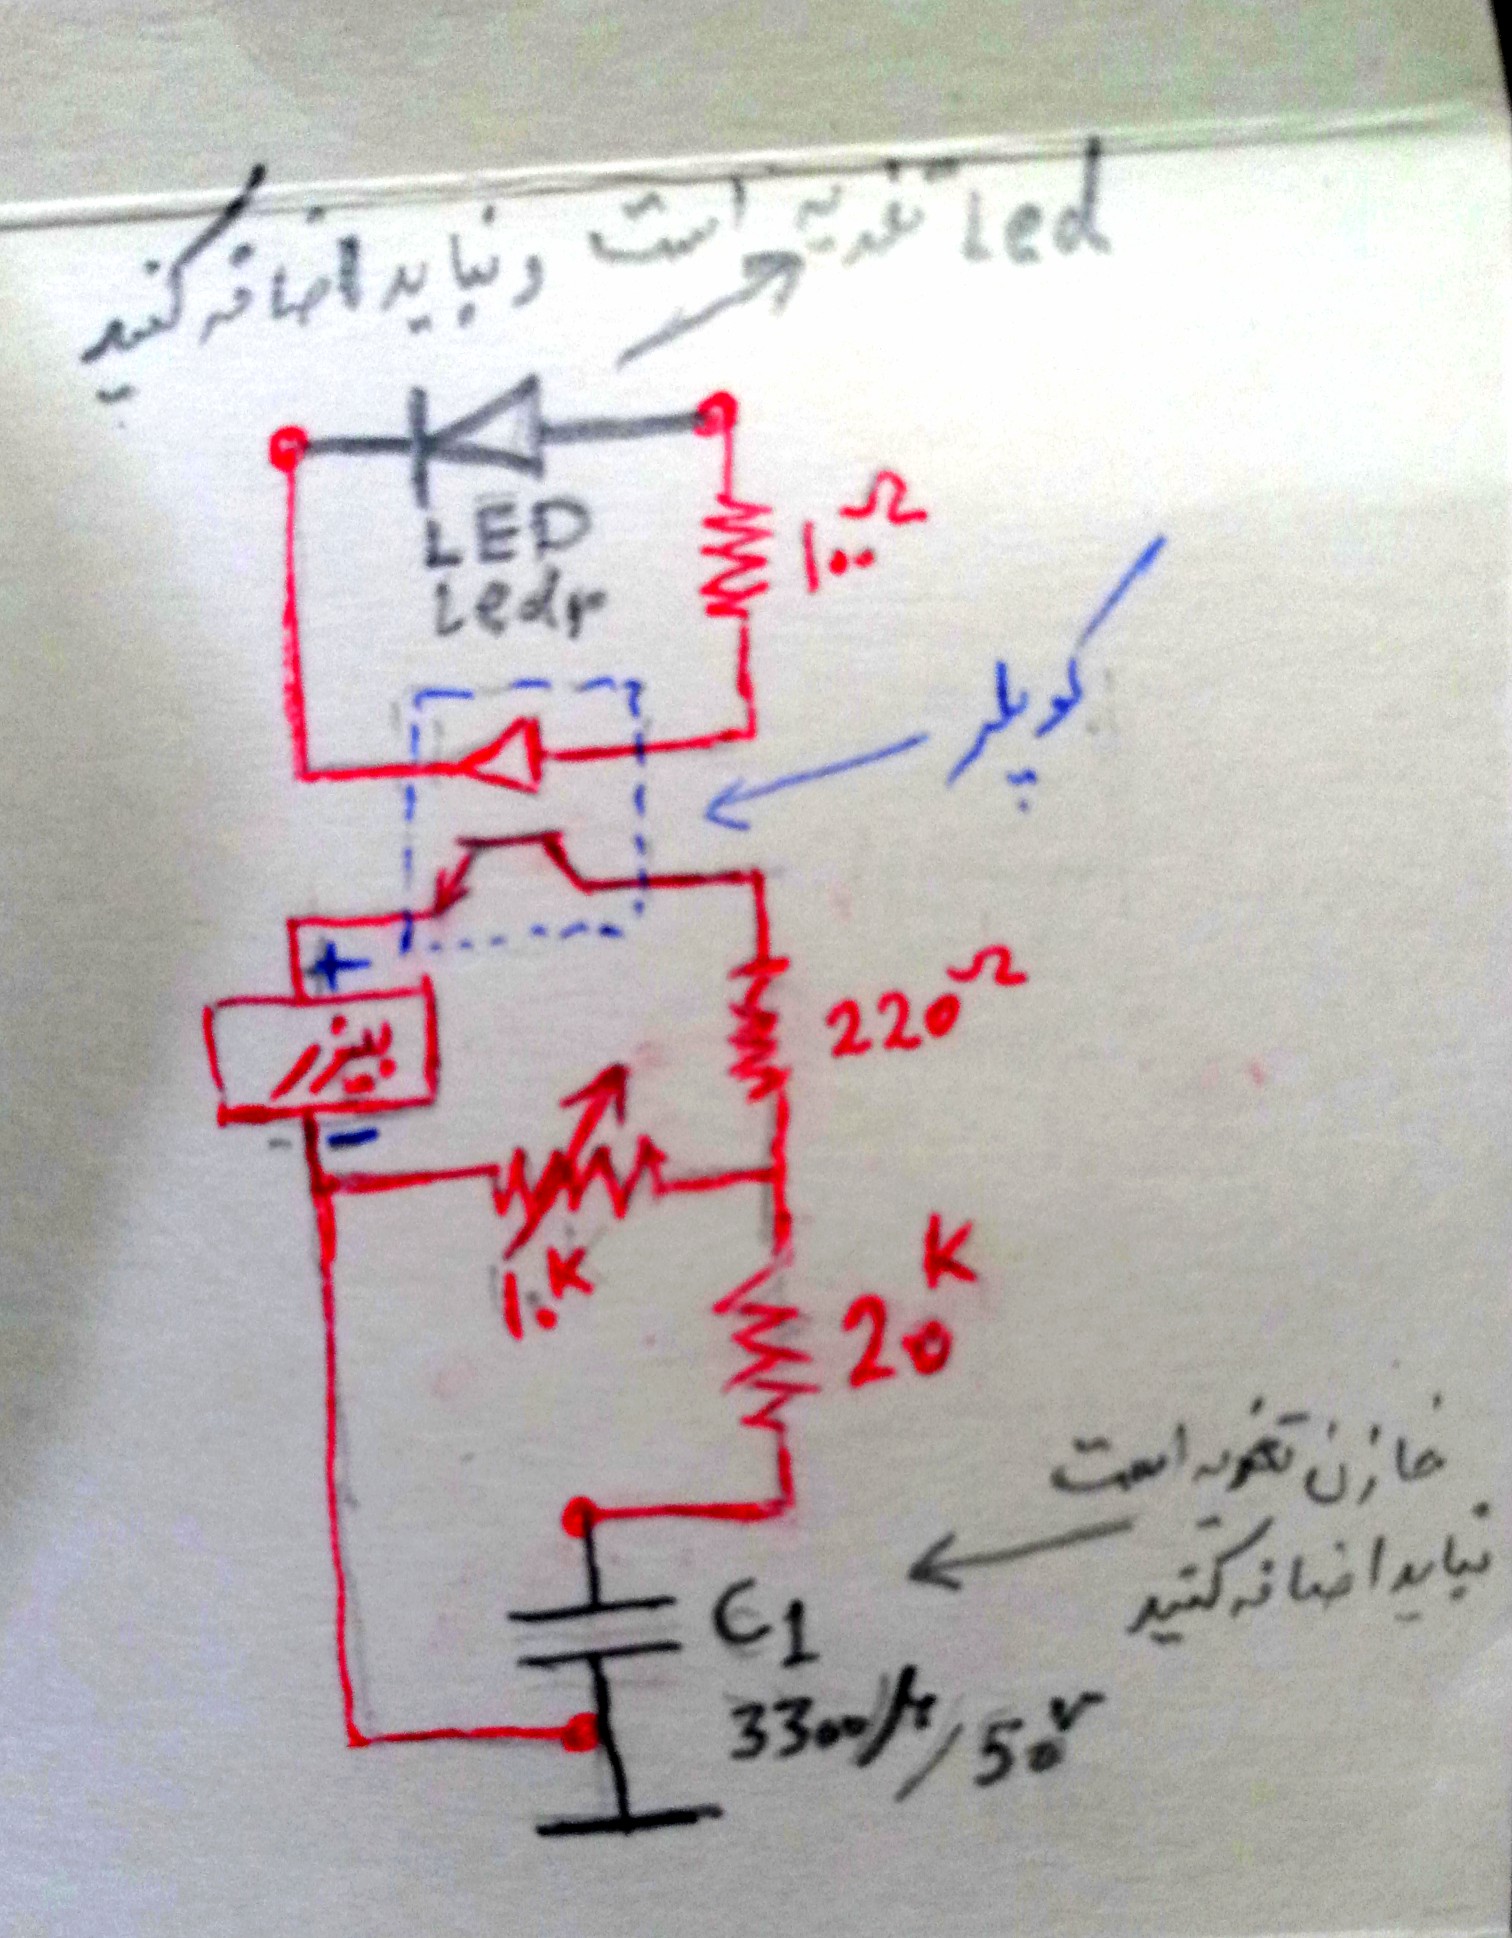 Led تغذیه است و نباید اضافه کنید
LED
Led2
۱۰۰Ω
کوپلر
+
بیزر
-
220Ω
۱۰K
20K
خازن تغذیه است
نباید اضافه کنید
C1
3300μ/50v